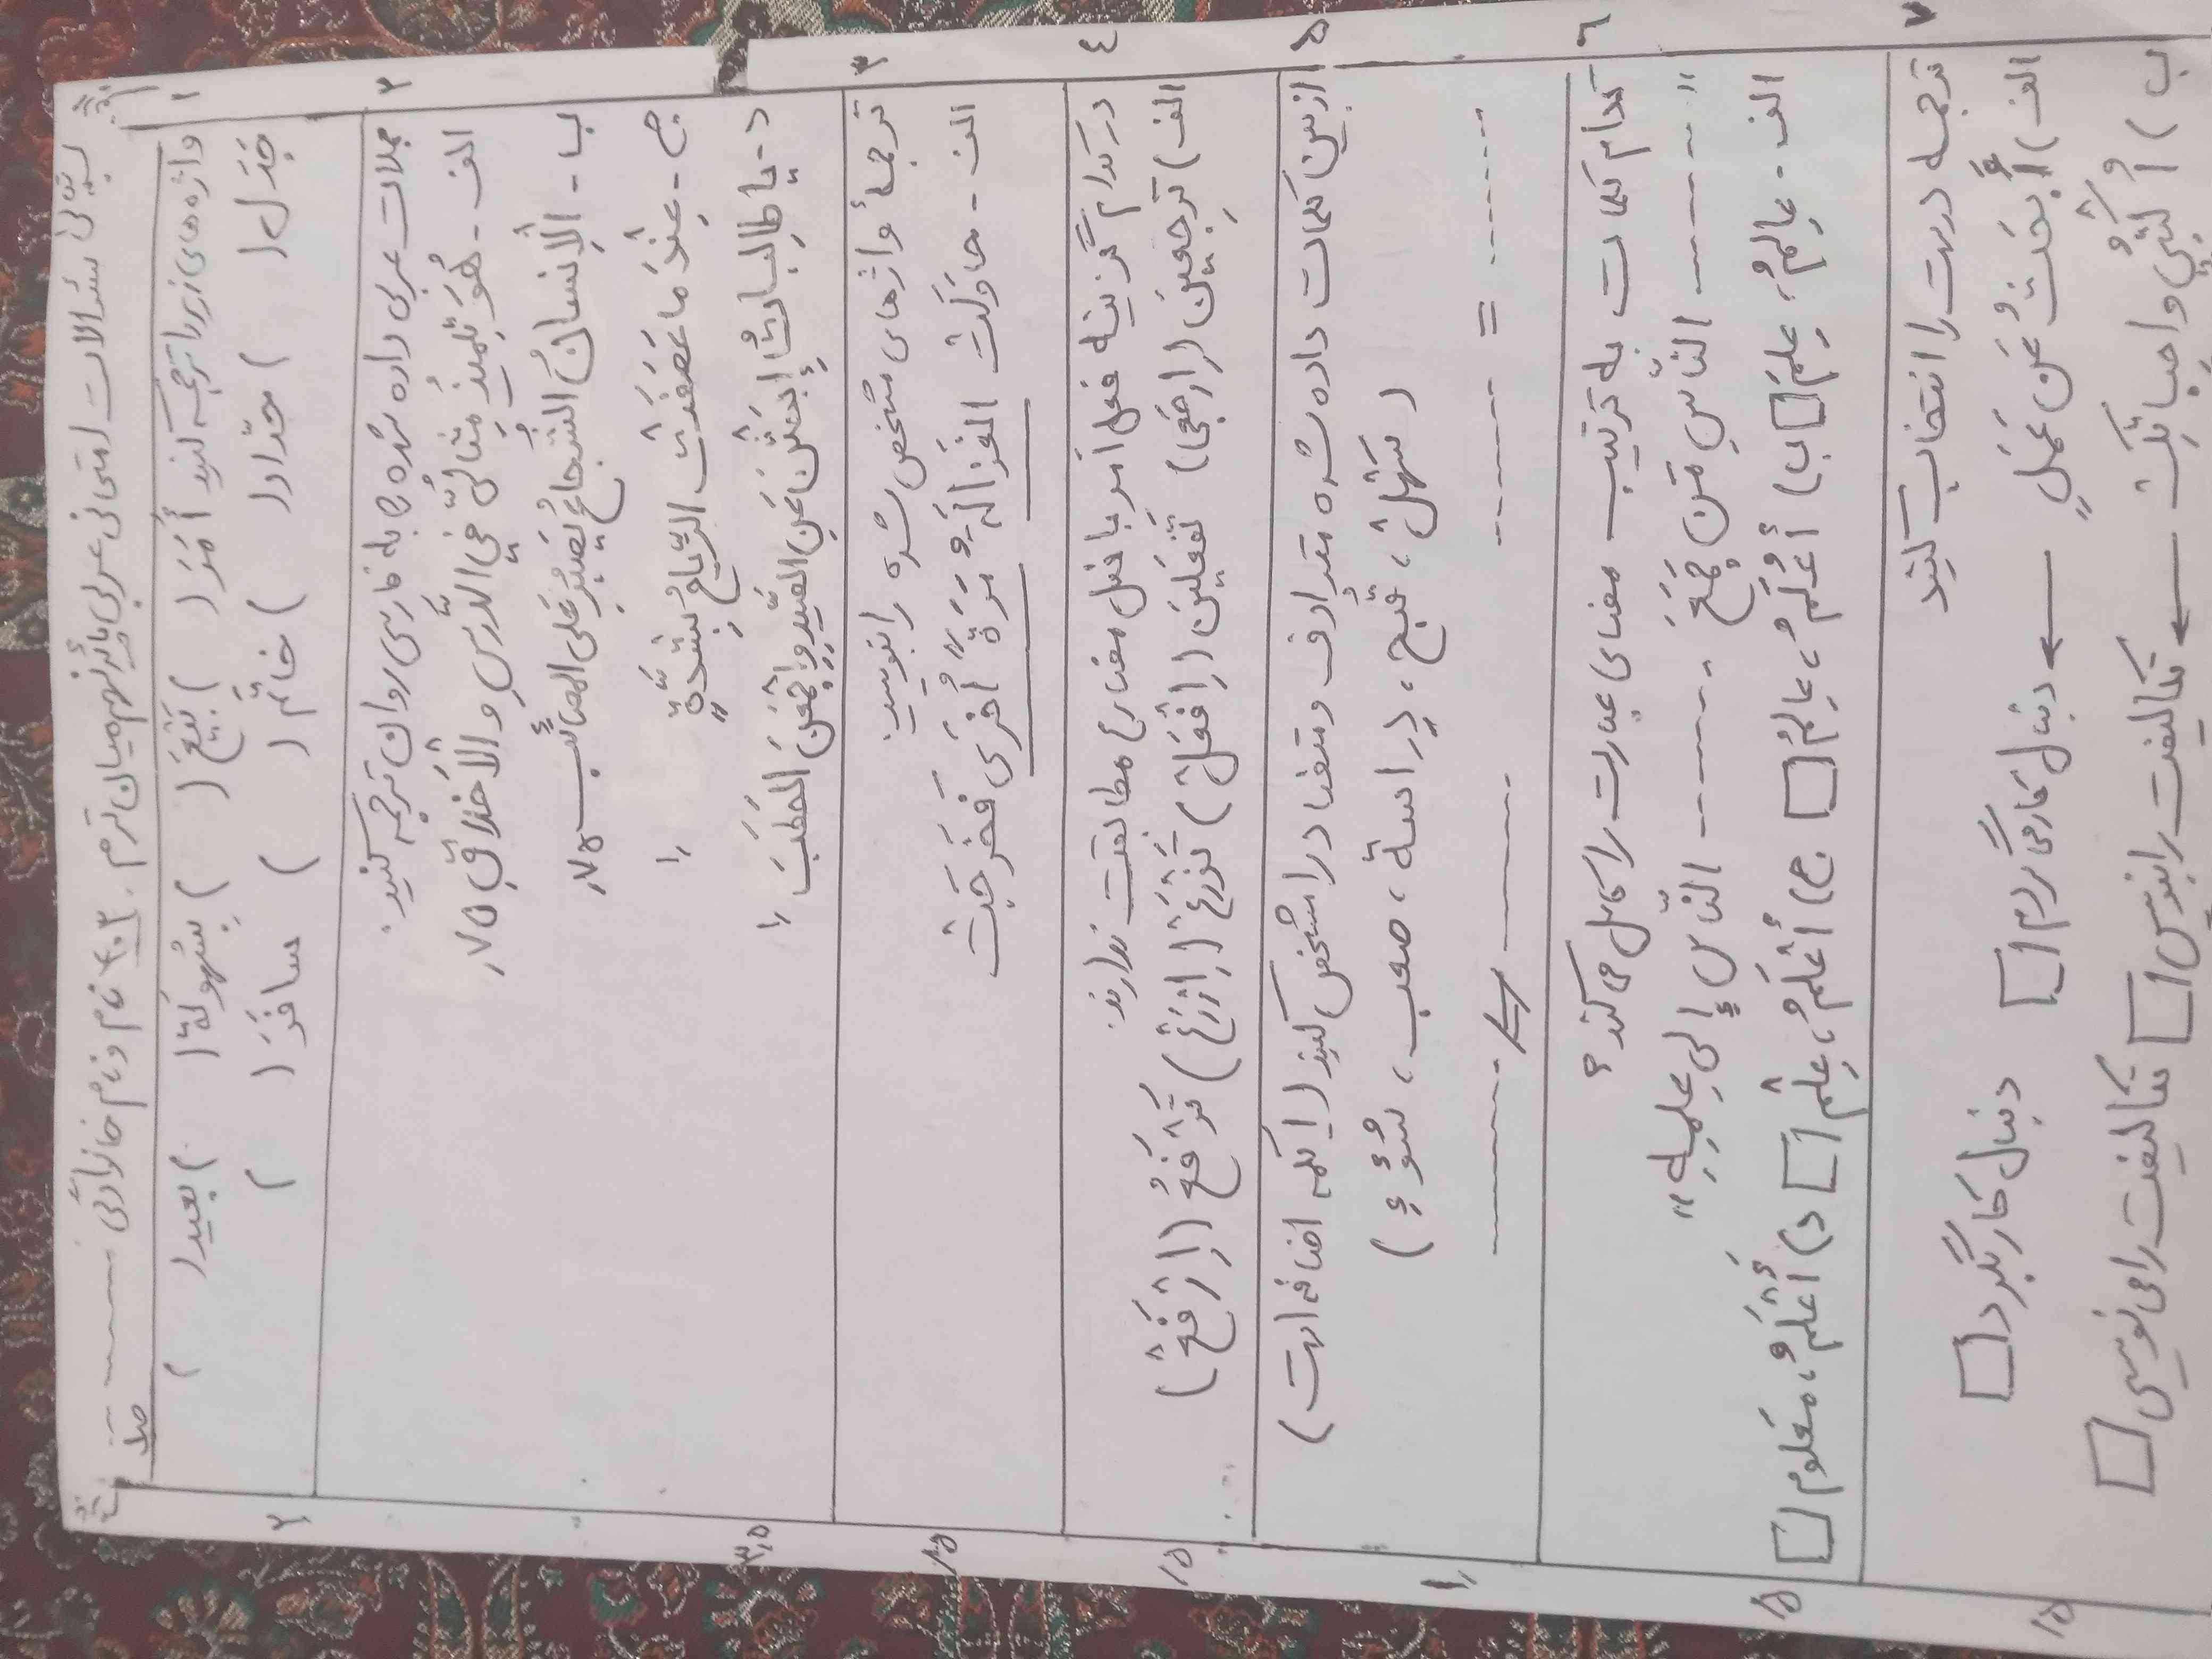 بسمه تعالی سئوالات امتحانی عربی پایۀ نهم میان ترم ۴۰۳ نام و نام خانوادگی
۱ واژه های زیر را ترجمه کنید أَمَرَ ( ) بَیْعَ ( ) بِسُهولَة ( ) بعید ( ) ۲
جَدَل ( ) حَدّاد ( ) خاتَم ( ) سافَرَ ( )
۲ جملات عربی داده شده را به فارسی روان ترجمه کنید.
الف - هُوَ تِلمیذٌ مِثالیٌّ فِي الدَّرسِ وَ الْأخلاقِ ۷۵,
ب - اَلْإنسانُ الشُّجاعُ یَصبِرُ عَلی المصائب ۷۵,
ج - عِنْدَ ما عَصَفَتْ الرّیاحُ بِشِدَّةٍ ۱,
د - یا طالِباتُ إبْحَثْنَ عَنِ الصَّیدِ وَ اجْمَعْنَ الحَطَبَ ۱, ۳,۵
۳ ترجمۀ واژه های مشخص شده را بنویسید.
الف - حاوَلَتْ الغَزالَةُ مَرَّةً اُخرَی فَخَرَجَتْ ۱۵
۴ در کدام گزینه فعل امر با فعل مضارع مطابقت ندارد.
الف) تَرجِعینَ (اِرجَعا) تَفعَلینَ (اِفْعَلْ) تَزْرَعُ (اِزْرَعْ) تَرْفَعُ (اِرْفَعْ) ۱۵
۵ از بین کلمات داده شده مترادف و متضاد را مشخص کنید (۱ کلمه اضافه است)
(سَهْلْ، قبُح، دِراسة، صعب، سُوْءِ)
------- = ------- ------- ≠ ------- ۱,
۶ کدام کلمات به ترتیب معنای عبارت را کامل می کند؟
" ------- النّاسِ مَن جَمَعَ ------- النّاسِ إلی عِلمِهِ "
الف - عالِمُ، عِلمَ □ ب) أعْلَمُ، عالِمُ □ ج) أعْلَمُ، عِلْم □ د) أعْلَمُ، مَعلوم □ ۵
۷ ترجمه درست را انتخاب کنید
الف) أبْحَثُ عَن عَمَلٍ ← دنبال کار می گردم □ دنبال کار بگرد □
ب) اُکْتُبْي واجِباتَِکَ ← تکالیفت را بنویس □ تکالیفت را می نویسی □ ۱۵